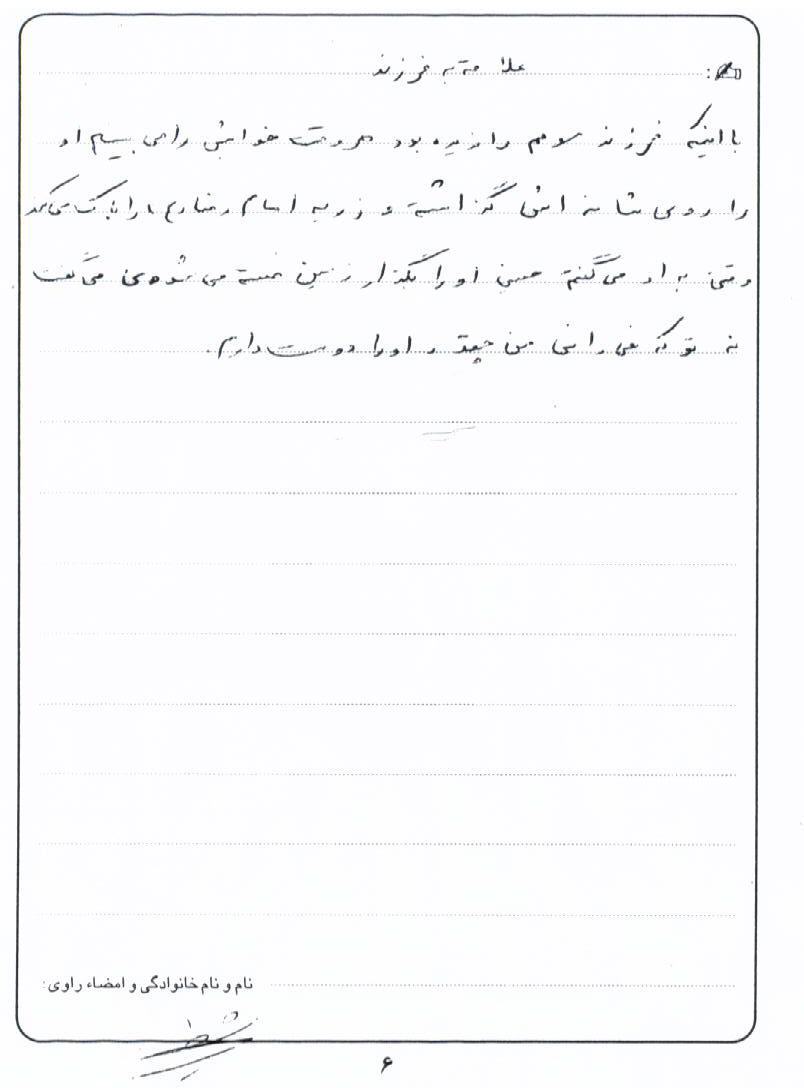 علاقه به فرزند
با اینکه فرزند سوم را ندیده بود هر وقت خواهش را می او
را روی شانه اش گذاشته و زیر به امام رضا را می کند
وقتی به او می گفتم حسین او را بگذار زمین خسته می شوی می گفت
نه تو که نمی دانی من چقدر او را دوست دارم.
نام و نام خانوادگی و امضاء راوی:
۶